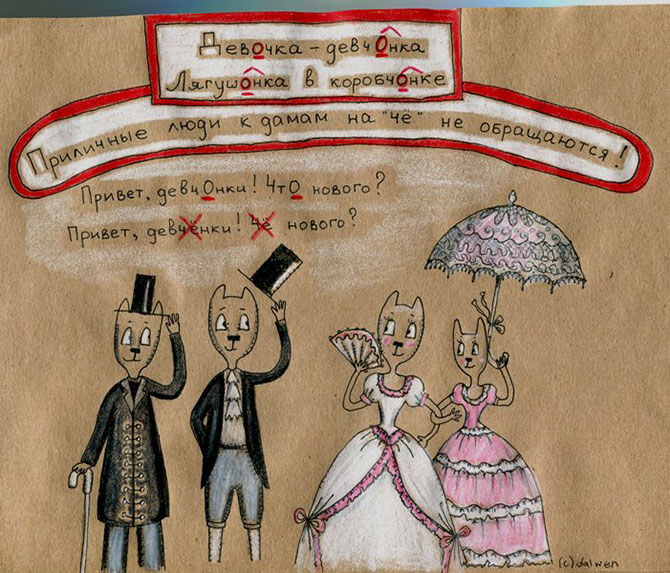 Девочка – девчОнка
Лягушонка в коробчонке
Приличные люди к дамам на "чё" не обращаются!
Привет, девчОнки! ЧтО нового?
Привет, девчёнки! Чё нового?
(c) dalwen